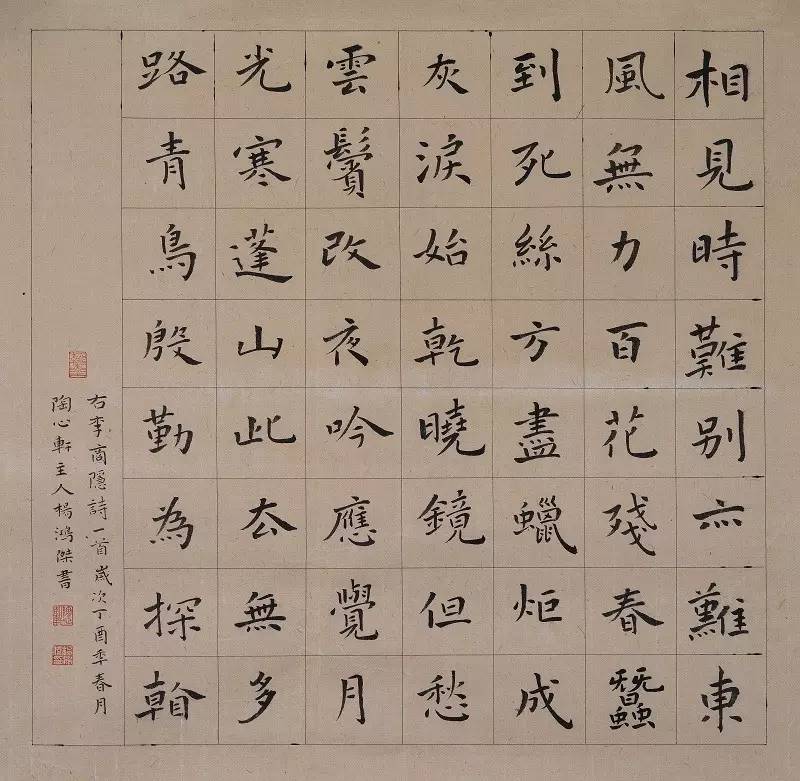 相見時難別亦難東
風無力百花殘春蠶
到死絲方盡蠟炬成
灰淚始乾曉鏡但愁
雲鬢改夜吟應覺月
光寒蓬山此去無多
路青鳥殷勤為探看
右李商隱詩一首歲次丁酉季春月
陶心軒主人楊鴻傑書